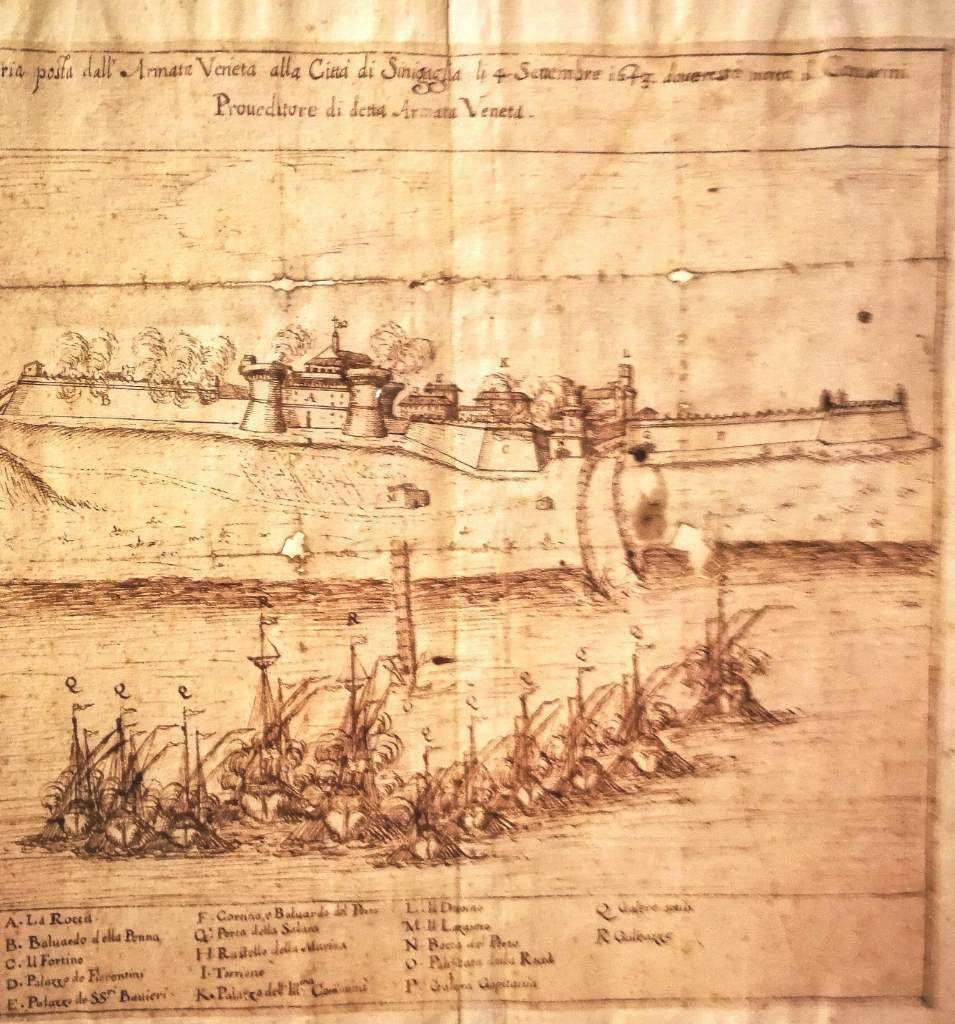 ria posta dall' Armata Veneta alla Città di Sinigaglia li 4 Settembre 1643. doue resta morto il Contarini
Proueditore di detta Armata Veneta.
K
L
B
A
C
H
M
R
R
Q
Q
Q
Q
Q
Q
A. La Rocca.
B. Baluardo della Penna
C. Il Fortino
D. Palazzo de Fiorentini
E. Palazzo de SSri Bauieri.
F. Cortina, o Baluardo del Porto
G. Porta della Salara
H. Rastello della Marina
I. Torrione
K. Palazzo dell' Illma Comunità
L. Il
M. Il
N. Bocca del Porto
O. Palificata della Rocca
P. Galera Capitania
Q. Galere
R. Galeazze